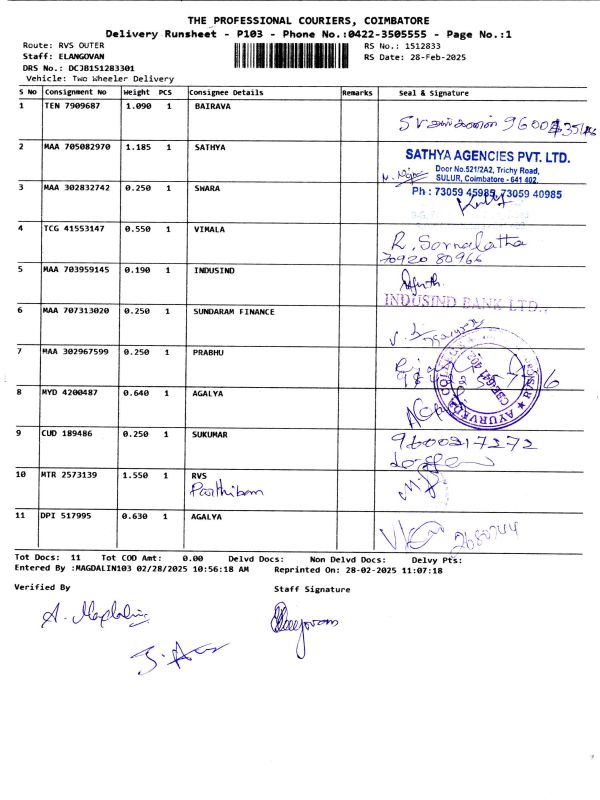 THE PROFESSIONAL COURIERS, COIMBATORE
Delivery Runsheet - P103 - Phone No.:0422-3505555 - Page No.:1
Route: RVS OUTER RS No.: 1512833
Staff: ELANGOVAN RS Date: 28-Feb-2025
DRS No.: DCJB151283301
Vehicle: Two Wheeler Delivery
S No Consignment No Weight PCS Consignee Details Remarks Seal & Signature
1 TEN 7909687 1.090 1 BAIRAVA
2 MAA 705082970 1.185 1 SATHYA
SATHYA AGENCIES PVT. LTD.
Door No.521/2A2, Trichy Road,
SULUR, Coimbatore - 641 402.
Ph : 73059 45985, 73059 40985
3 MAA 302832742 0.250 1 SWARA
4 TCG 41553147 0.550 1 VIMALA
R. Sornalatha
70920 80966
5 MAA 703959145 0.190 1 INDUSIND
INDUSIND BANK LTD.,
6 MAA 707313020 0.250 1 SUNDARAM FINANCE
7 MAA 302967599 0.250 1 PRABHU
8 MYD 4200487 0.640 1 AGALYA
9 CUD 189486 0.250 1 SUKUMAR
9600217272
10 MTR 2573139 1.550 1 RVS
Parthiban
11 DPI 517995 0.630 1 AGALYA
Tot Docs: 11 Tot COD Amt: 0.00 Delvd Docs: Non Delvd Docs: Delvy Pts:
Entered By :MAGDALIN103 02/28/2025 10:56:18 AM Reprinted On: 28-02-2025 11:07:18
Verified By Staff Signature